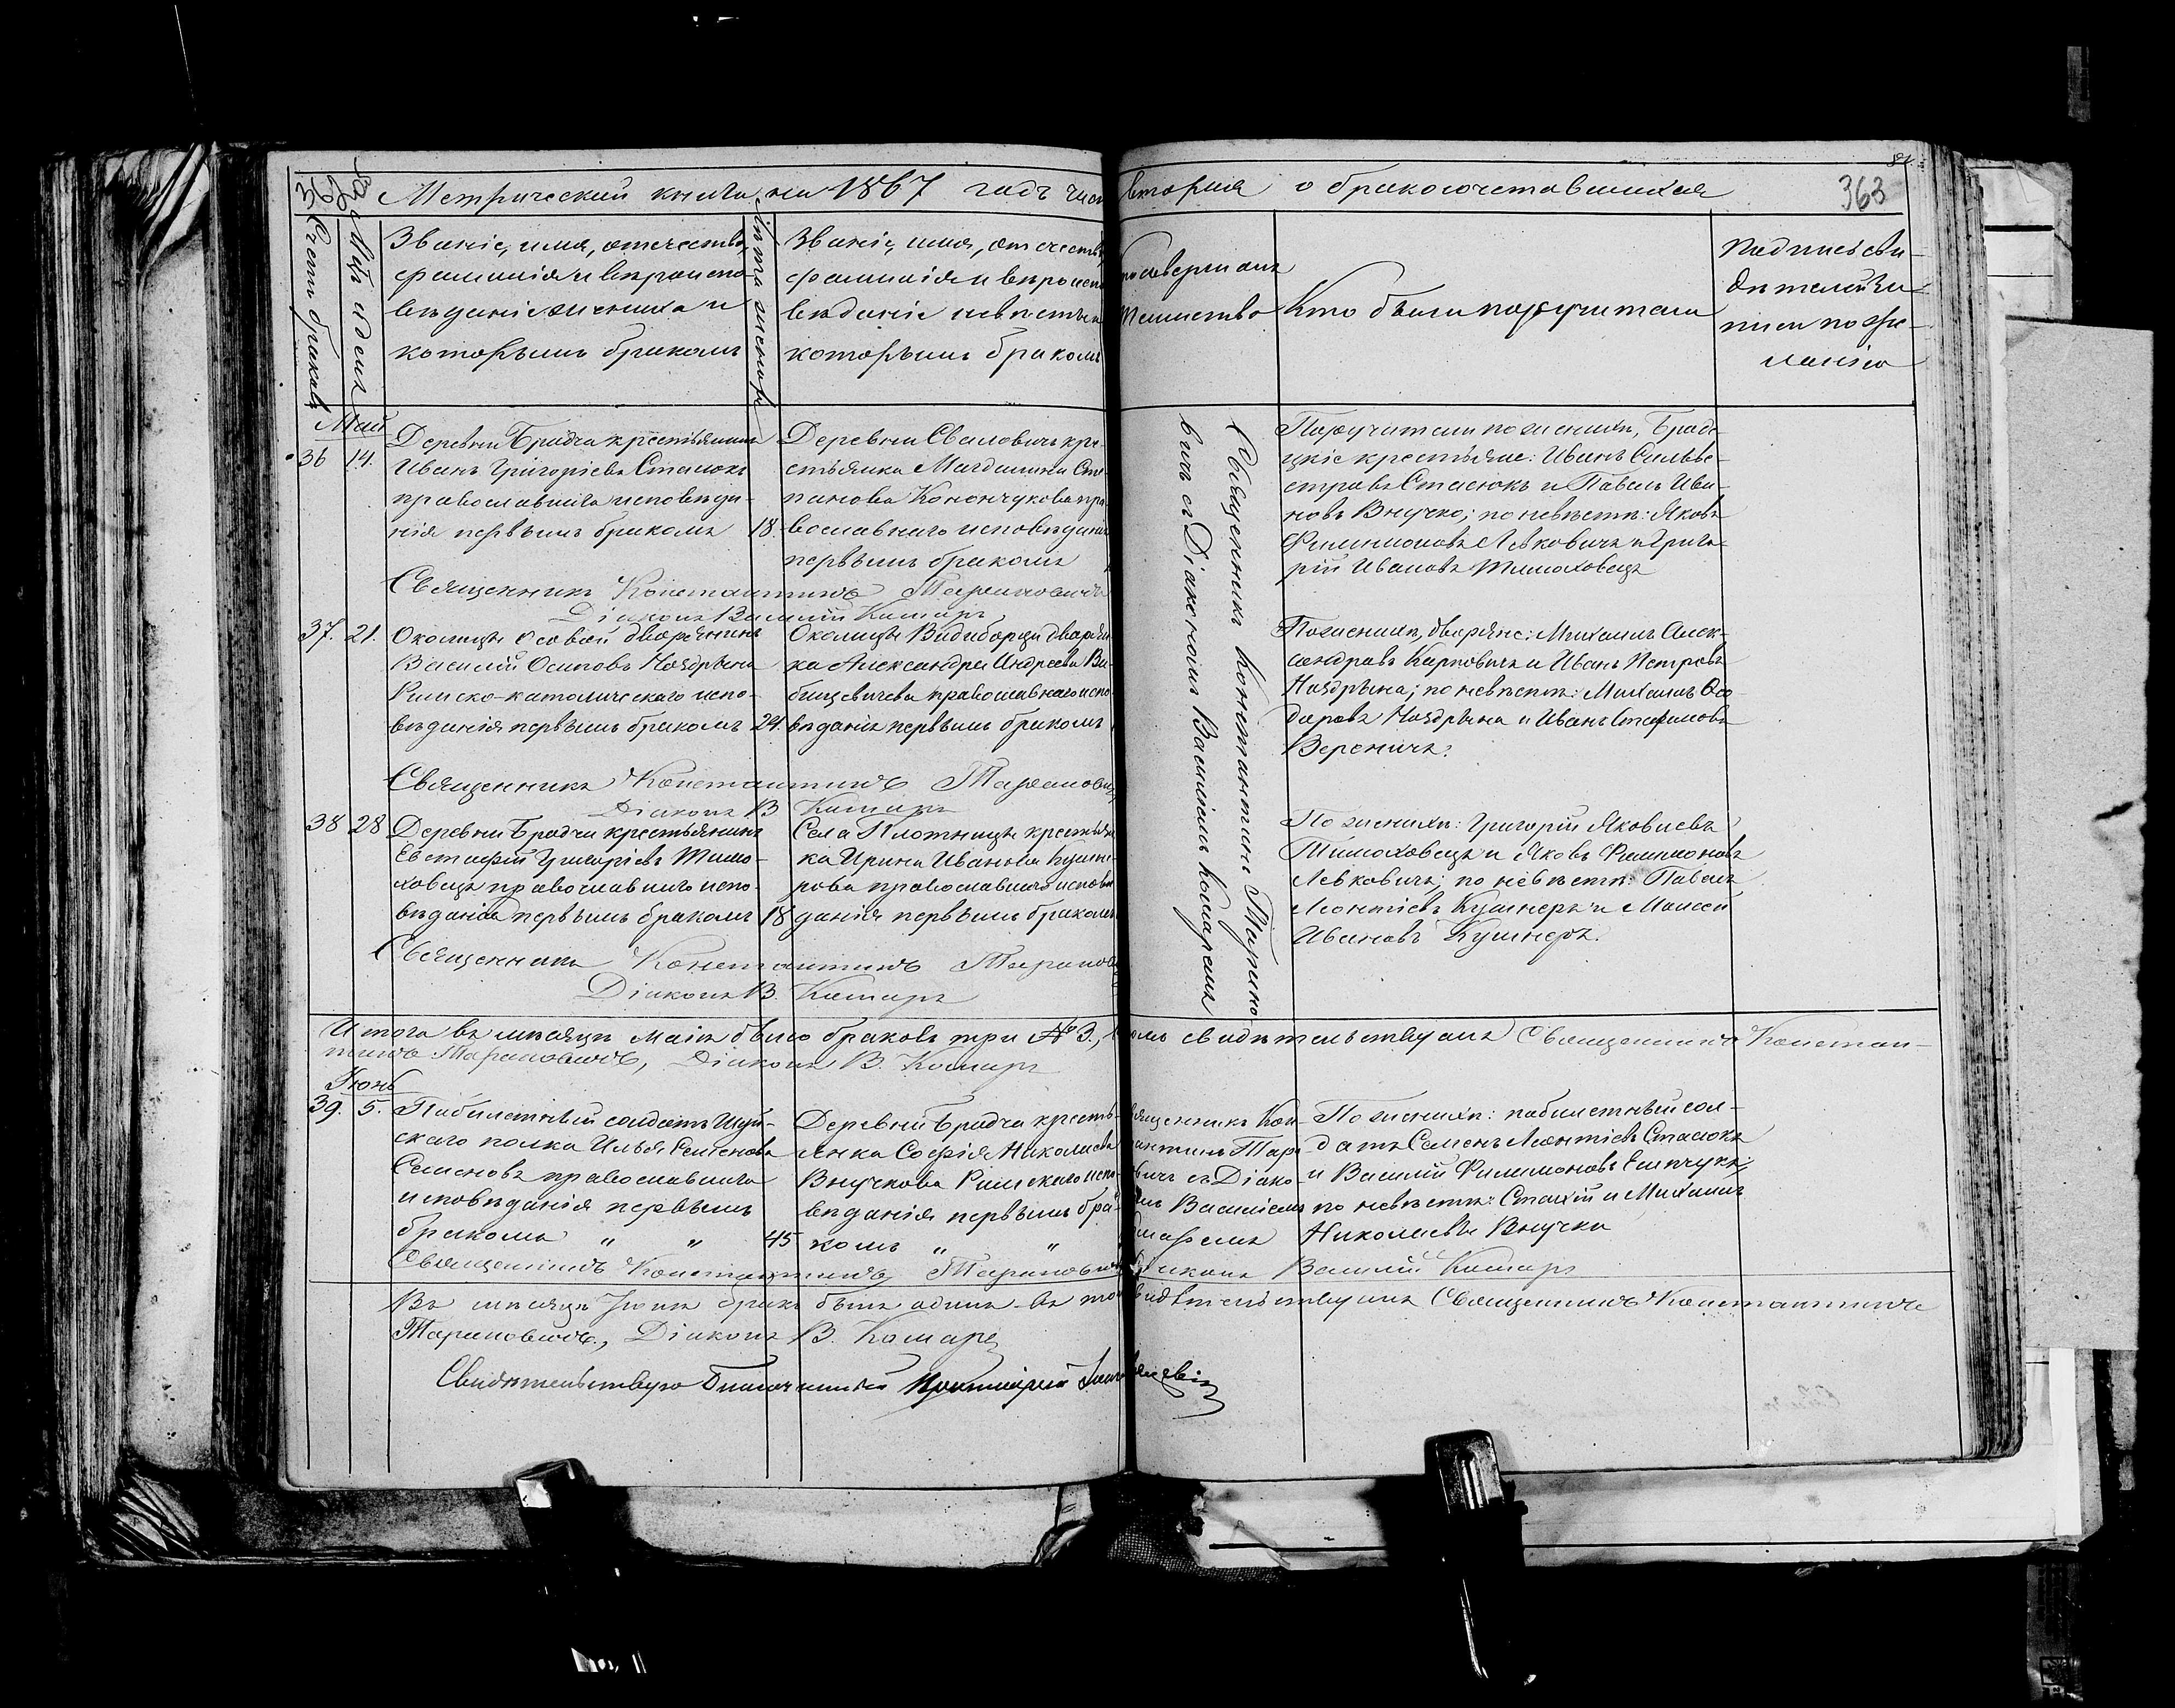 84.
363
Метрической книги на 1867 годъ части второй о бракосочетавшихся
Счетъ браковъ
Мѣс. и день
Званіе, имя, отечество,
фамилія и вѣроиспо-
вѣданіе жениха и
которымъ бракомъ
Лѣта жениха
Званіе, имя, отечество,
фамилія и вѣроиспо
вѣданіе невѣсты и
которымъ бракомъ
Кто совершалъ
Таинство
Кто были поручители
Подпись сви-
дѣтелей за-
писи по же-
ланію
Май
36 14. Деревни Бродча крестьянинъ
Иванъ Григоріевъ Стасюкъ
православнаго исповѣда-
нія первымъ бракомъ 18.
Деревни Сваловичъ кре-
стьянка Магдалина Сте-
панова Конончукова пра-
вославнаго исповѣданія
первымъ бракомъ
Священникъ Константинъ Тарано-
вичъ съ Діакономъ Василіемъ Комаромъ
Поручители по женихѣ, Брод-
цкіе крестьяне: Иванъ Сильве-
стровъ Стасюкъ и Павелъ Ива-
новъ Внучко; по невѣстѣ: Яковъ
Филимоновъ Левковичъ и Григо-
рій Ивановъ Тимоховецъ
Священникъ Константинъ Тарановичъ
Діаконъ Василій Комаръ
37. 21. Околицы Осовой дворянинъ
Василій Осиповъ Ноздрына
Римско-католическаго испо-
вѣданія первымъ бракомъ 24.
Околицы Видиборци дворян
ка Александра Андреева Ви-
бицевичева православнаго испо
вѣданія первымъ бракомъ
По женихѣ, дворяне: Михаилъ Алек-
сандровъ Карповичъ и Иванъ Петровъ
Ноздрына; по невѣстѣ: Михаилъ Ѳео
доровъ Ноздрына и Иванъ Стафимовъ
Вереничъ.
Священникъ Константинъ Тарановичъ
Діаконъ В. Комаръ
38 28 Деревни Бродчи крестьянинъ
Евстафій Григоріевъ Тимо-
ховецъ православнаго испо-
вѣданія первымъ бракомъ 18
Села Плотницы крестьян
ка Ирина Иванова Кушне-
рова православнаго исповѣ
данія первымъ бракомъ
По женихѣ: Григорій Яковлевъ
Тимоховецъ и Яковъ Филимоновъ
Левковичъ; по невѣстѣ: Павелъ
Леонтіевъ Кушнеръ и Моисей
Ивановъ Кушнеръ.
Священникъ Константинъ Тарановичъ
Діаконъ В. Комаръ
Итого въ мѣсяцѣ Маіѣ было браковъ три № 3., въ томъ свидѣтельствуемъ Священникъ Констан-
тинъ Тарановичъ, Діаконъ В. Комаръ
Іюнь
39. 5. Побилетный солдатъ Шуй-
скаго полка Илья Семеновъ
Семеновъ православнаго
исповѣданія первымъ
бракомъ " " 45
Деревни Бродча кресть-
янка Софія Николаева
Внучкова Римскаго испо-
вѣданія первымъ бра-
комъ " "
Священникъ Кон-
стантинъ Тара
новичъ съ Діако
номъ Василіемъ
Комаромъ
По женихѣ: побилетный сол-
датъ Семенъ Леонтіевъ Стасюкъ
и Василій Филимоновъ Ешчукъ;
по невѣстѣ: Стахій и Михаилъ
Николаевы Внучки
Священникъ Константинъ Тарановичъ Діаконъ Василій Комаръ
Въ мѣсяцѣ Іюнѣ бракъ былъ одинъ въ томъ свидѣтельствуемъ Священникъ Константинъ
Тарановичъ., Діаконъ В. Комаръ
Свидѣтельствую Благочинный